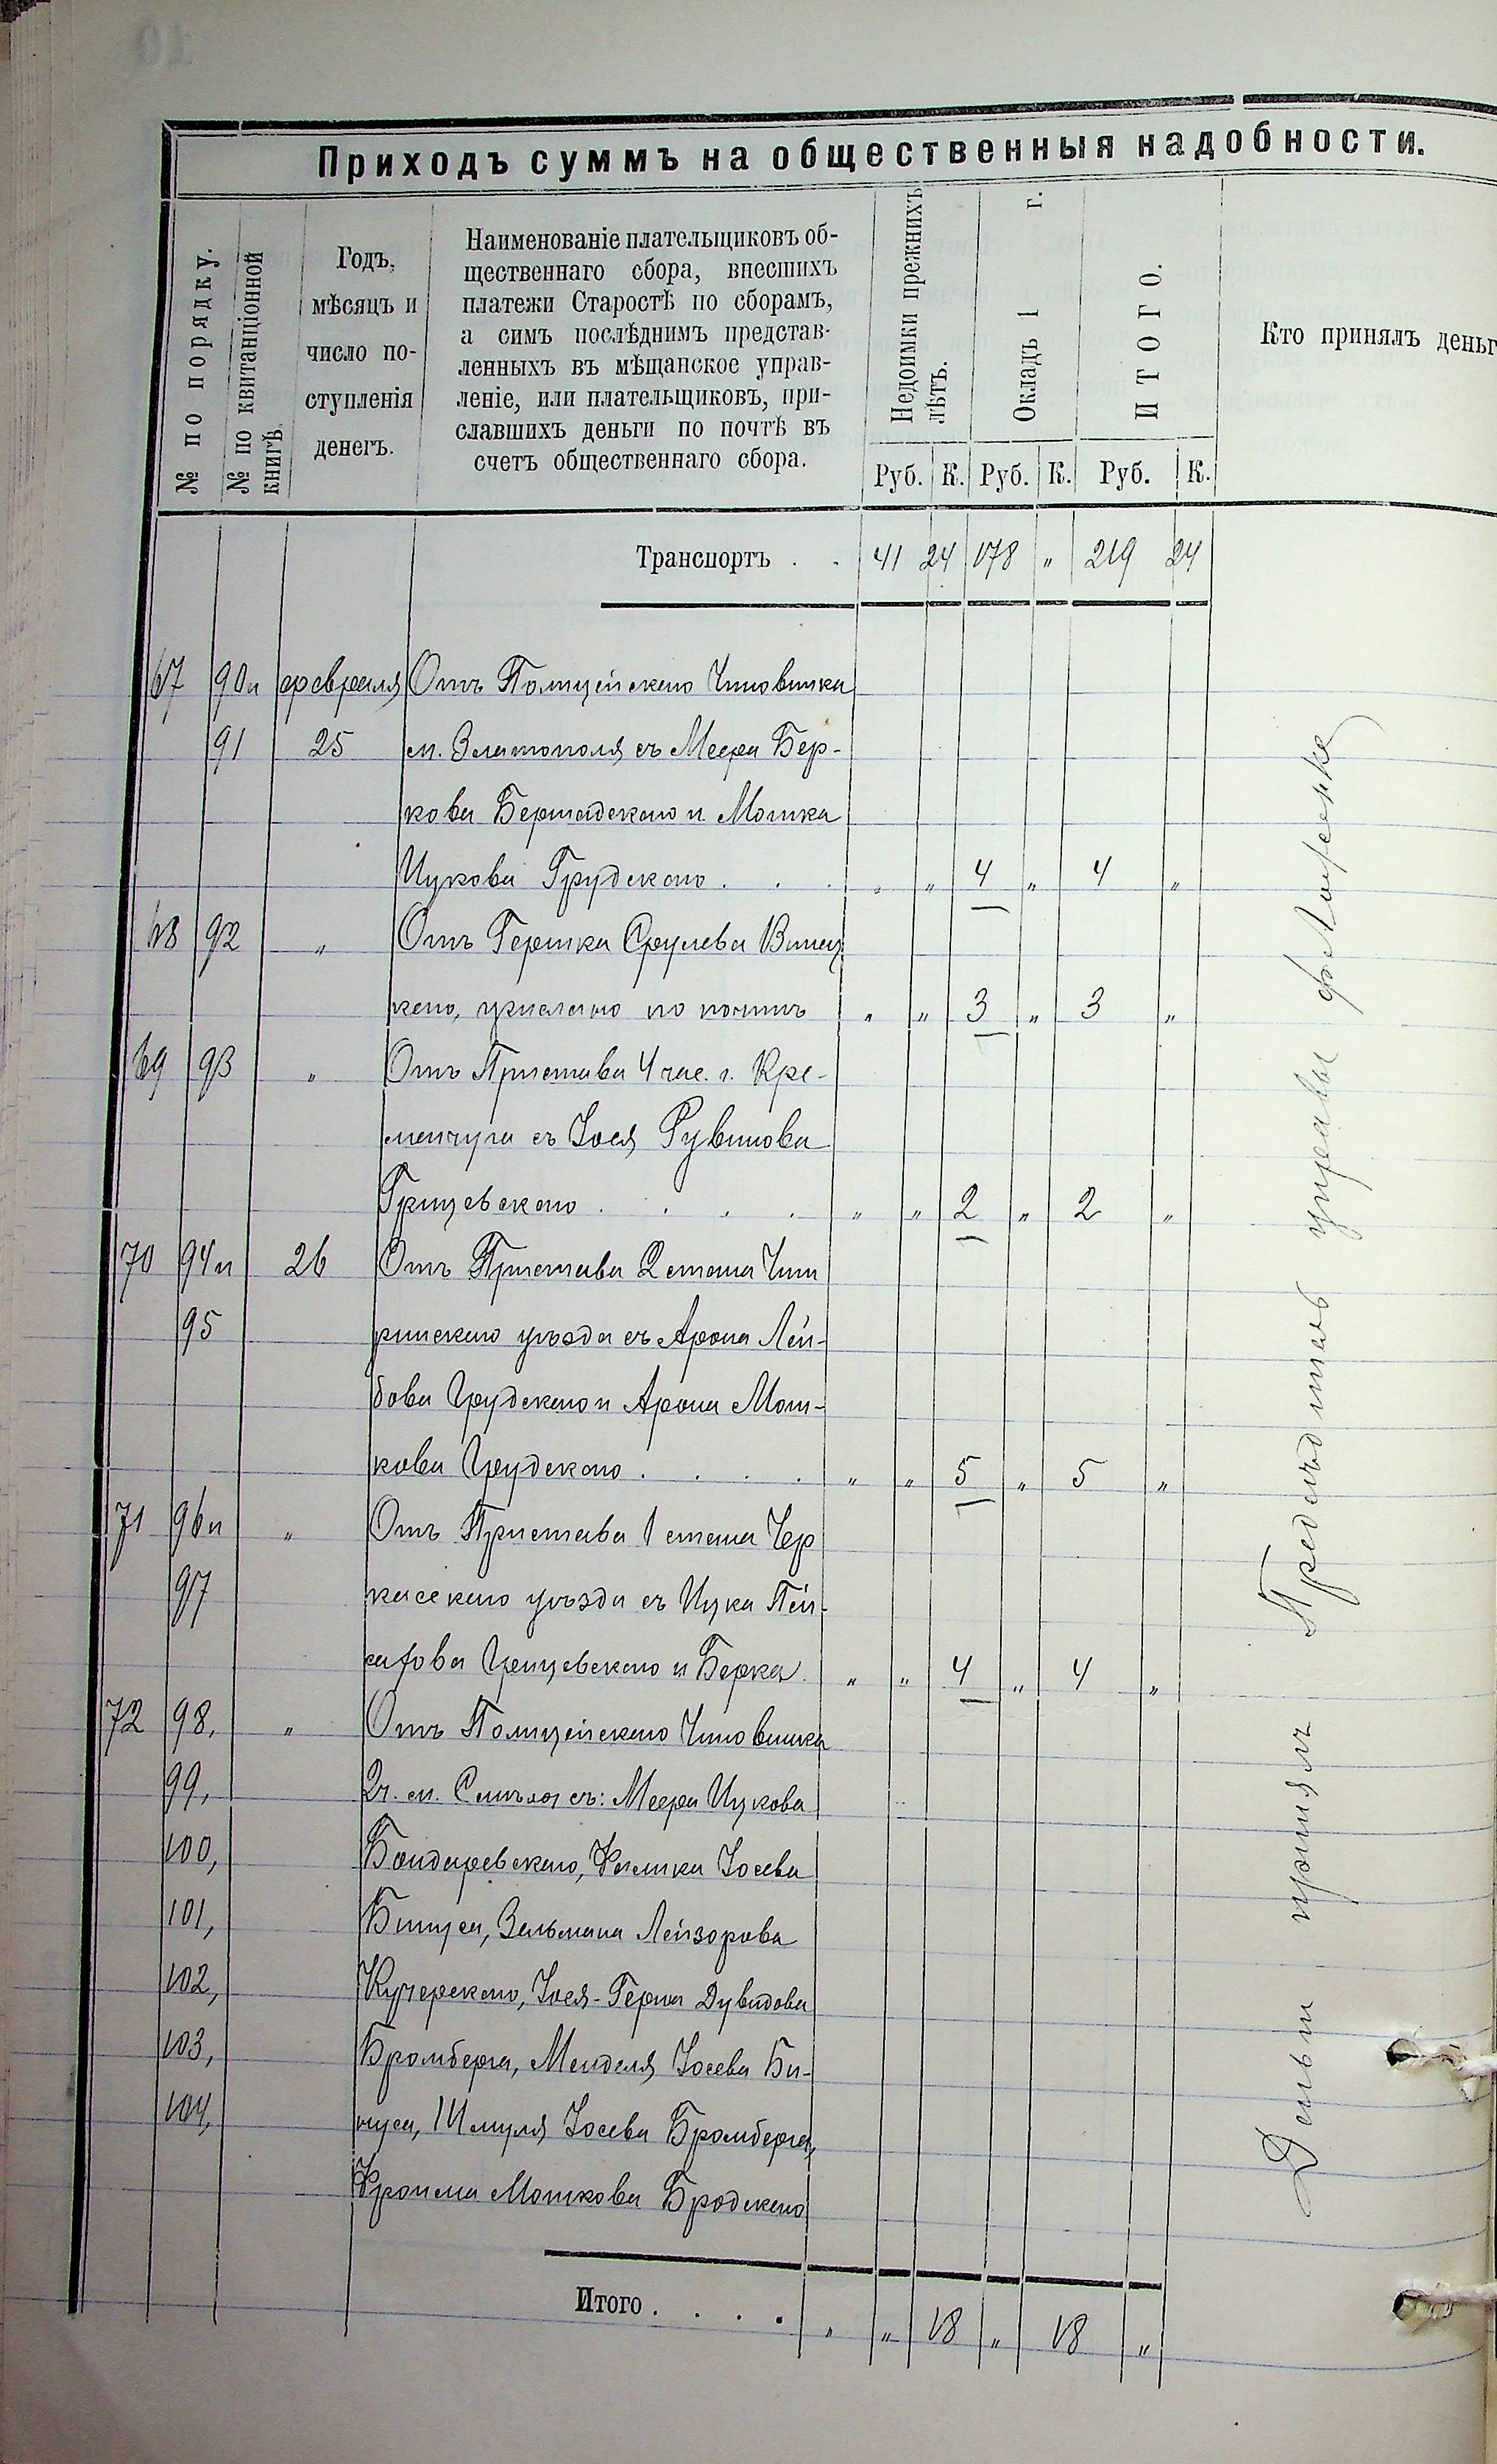 Приходъ суммъ на общественныя надобности.
№ по порядку.
№ по квитанціонной
книгѣ.
Годъ,
мѣсяцъ и
число по-
ступленія
денегъ.
Наименованіе плательщиковъ об-
щественнаго сбора, внесшихъ
платежи Старостѣ по сборамъ,
а симъ послѣднимъ представ-
ленныхъ въ мѣщанское управ-
леніе, или плательщиковъ, при-
славшихъ деньги по почтѣ въ
счетъ общественнаго сбора.
Недоимки прежнихъ
лѣтъ.
Окладъ 1 г.
ИТОГО.
Кто принялъ деньг
Руб. К. Руб. К. Руб. К.
Транспортъ . . 41 24 178 " 219 24
67 90и февраля Отъ Полицейскаго Чиновника
91 25 м. Златополя съ Меера Бер-
кова Бершадскаго и Мошка
Ицкова Грудскаго . . . " " 4 " 4 "
68 92 " Отъ Гершка Срулева Винец
каго, прислано по почтѣ " " 3 " 3 "
69 93 " Отъ Пристава 4 час. г. Кре-
менчуга съ Іося Рувинова
Грицевскаго . . . . " " 2 " 2 "
70 94и 26 Отъ Пристава 2 стана Чиги
95 ринскаго уѣзда съ Арона Лей-
бова Грудскаго и Арона Мош-
кова Грудскаго . . . . " " 5 " 5 "
71 96и " Отъ Пристава 1 стана Чер
97 касскаго уѣзда съ Ицка Пей-
сахова Грицевскаго и Берка. " " 4 " 4 "
72 98, " Отъ Полицейскаго Чиновника
99, 2ч. м. Смѣлы съ: Меера Ицкова
100, Бондаревскаго, Фалика Іосева
101, Бинуса, Зельмана Лейзорова
102, Кучерскаго, Іося-Герша Дувидова
103, Бромберга, Менделя Іосева Би-
104, нуса, Шмуля Іосева Бромберга,
Фроима Мошкова Бродскаго
Итого . . . . " " 18 " 18 "
Деньги принялъ Предсѣдатель управы